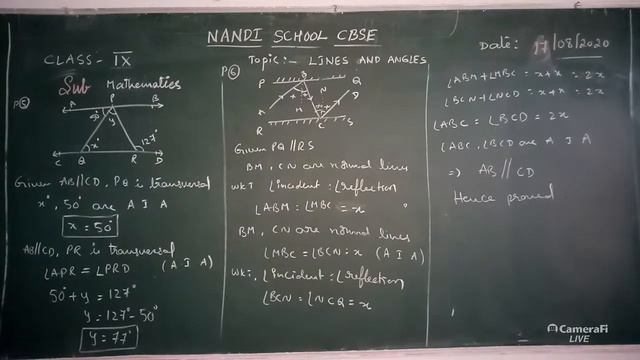 NANDI SCHOOL CBSE
CLASS:- IX
Topic:- LINES AND ANGLES
Date: 17/08/2020
Sub Mathematics
P⑤
A P B
50° y
x° 127°
C Q R D
Given AB//CD, PQ is transversal
x°, 50° are A I A
x = 50°
AB//CD, PR is transversal
∠APR = ∠PRD (A I A)
50° + y = 127°
y = 127° - 50°
y = 77°
P⑥
P B Q
N
A x x D
M x x
R C S
Given PQ // RS
BM, CN are normal lines
WKT ∠incident = ∠reflection
∠ABM = ∠MBC = x
BM, CN are normal lines
∠MBC = ∠BCN = x (A I A)
WKT, ∠incident = ∠reflection
∠BCN = ∠NCQ = x
∠ABM + ∠MBC = x + x = 2x
∠BCN + ∠NCD = x + x = 2x
∠ABC = ∠BCD = 2x
∠ABC, ∠BCD are A I A
⇒ AB // CD
Hence proved
CameraFi
LIVE